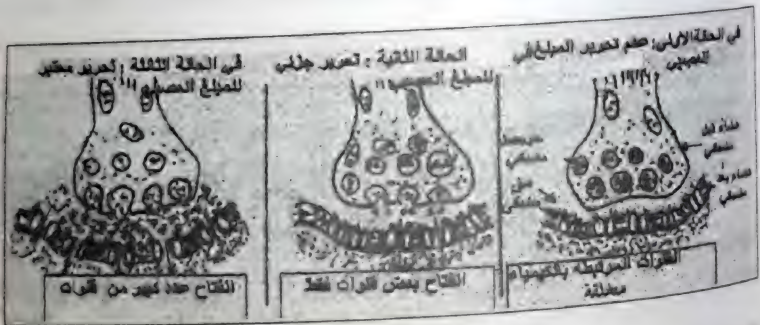 في الحالة الأولى: عدم تحرير المبلغ في
العصبي
غشاء قبل
مشبكي
حويصل
مشبكي
غشاء بعد
مشبكي
مشبكي
القنوات المرتبطة بالكيمياء
مغلقة
الحالة الثانية : تحرير جزئي
للمبلغ العصبي
انفتاح بعض قنوات فقط
في الحالة الثالثة : تحرير معتبر
للمبلغ العصبي
انفتاح عدد كبير من قنوات